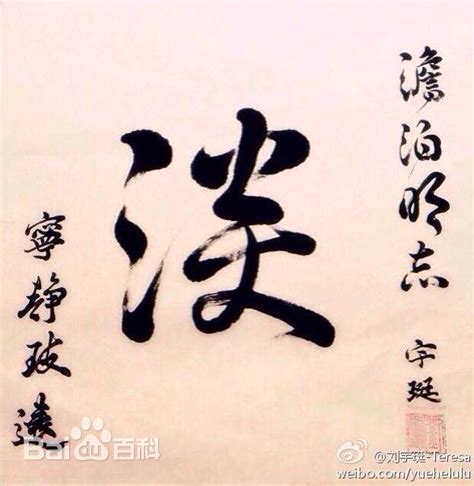 澹泊明志
宇珽
淡
寧静致遠
Bai du 百科
@刘宇珽-Teresa
weibo.com/yuehelulu